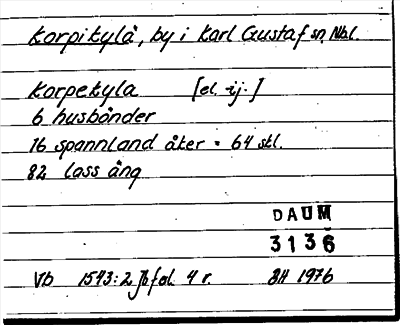 Korpikylä, by i Karl Gustaf sn, Nbl.
Korpekyla [el. -ij.]
6 husbönder
16 spannland åker = 64 skl.
82 lass äng
DAUM
3136
Vb 1543:2 fol. 4 r. BH 1976